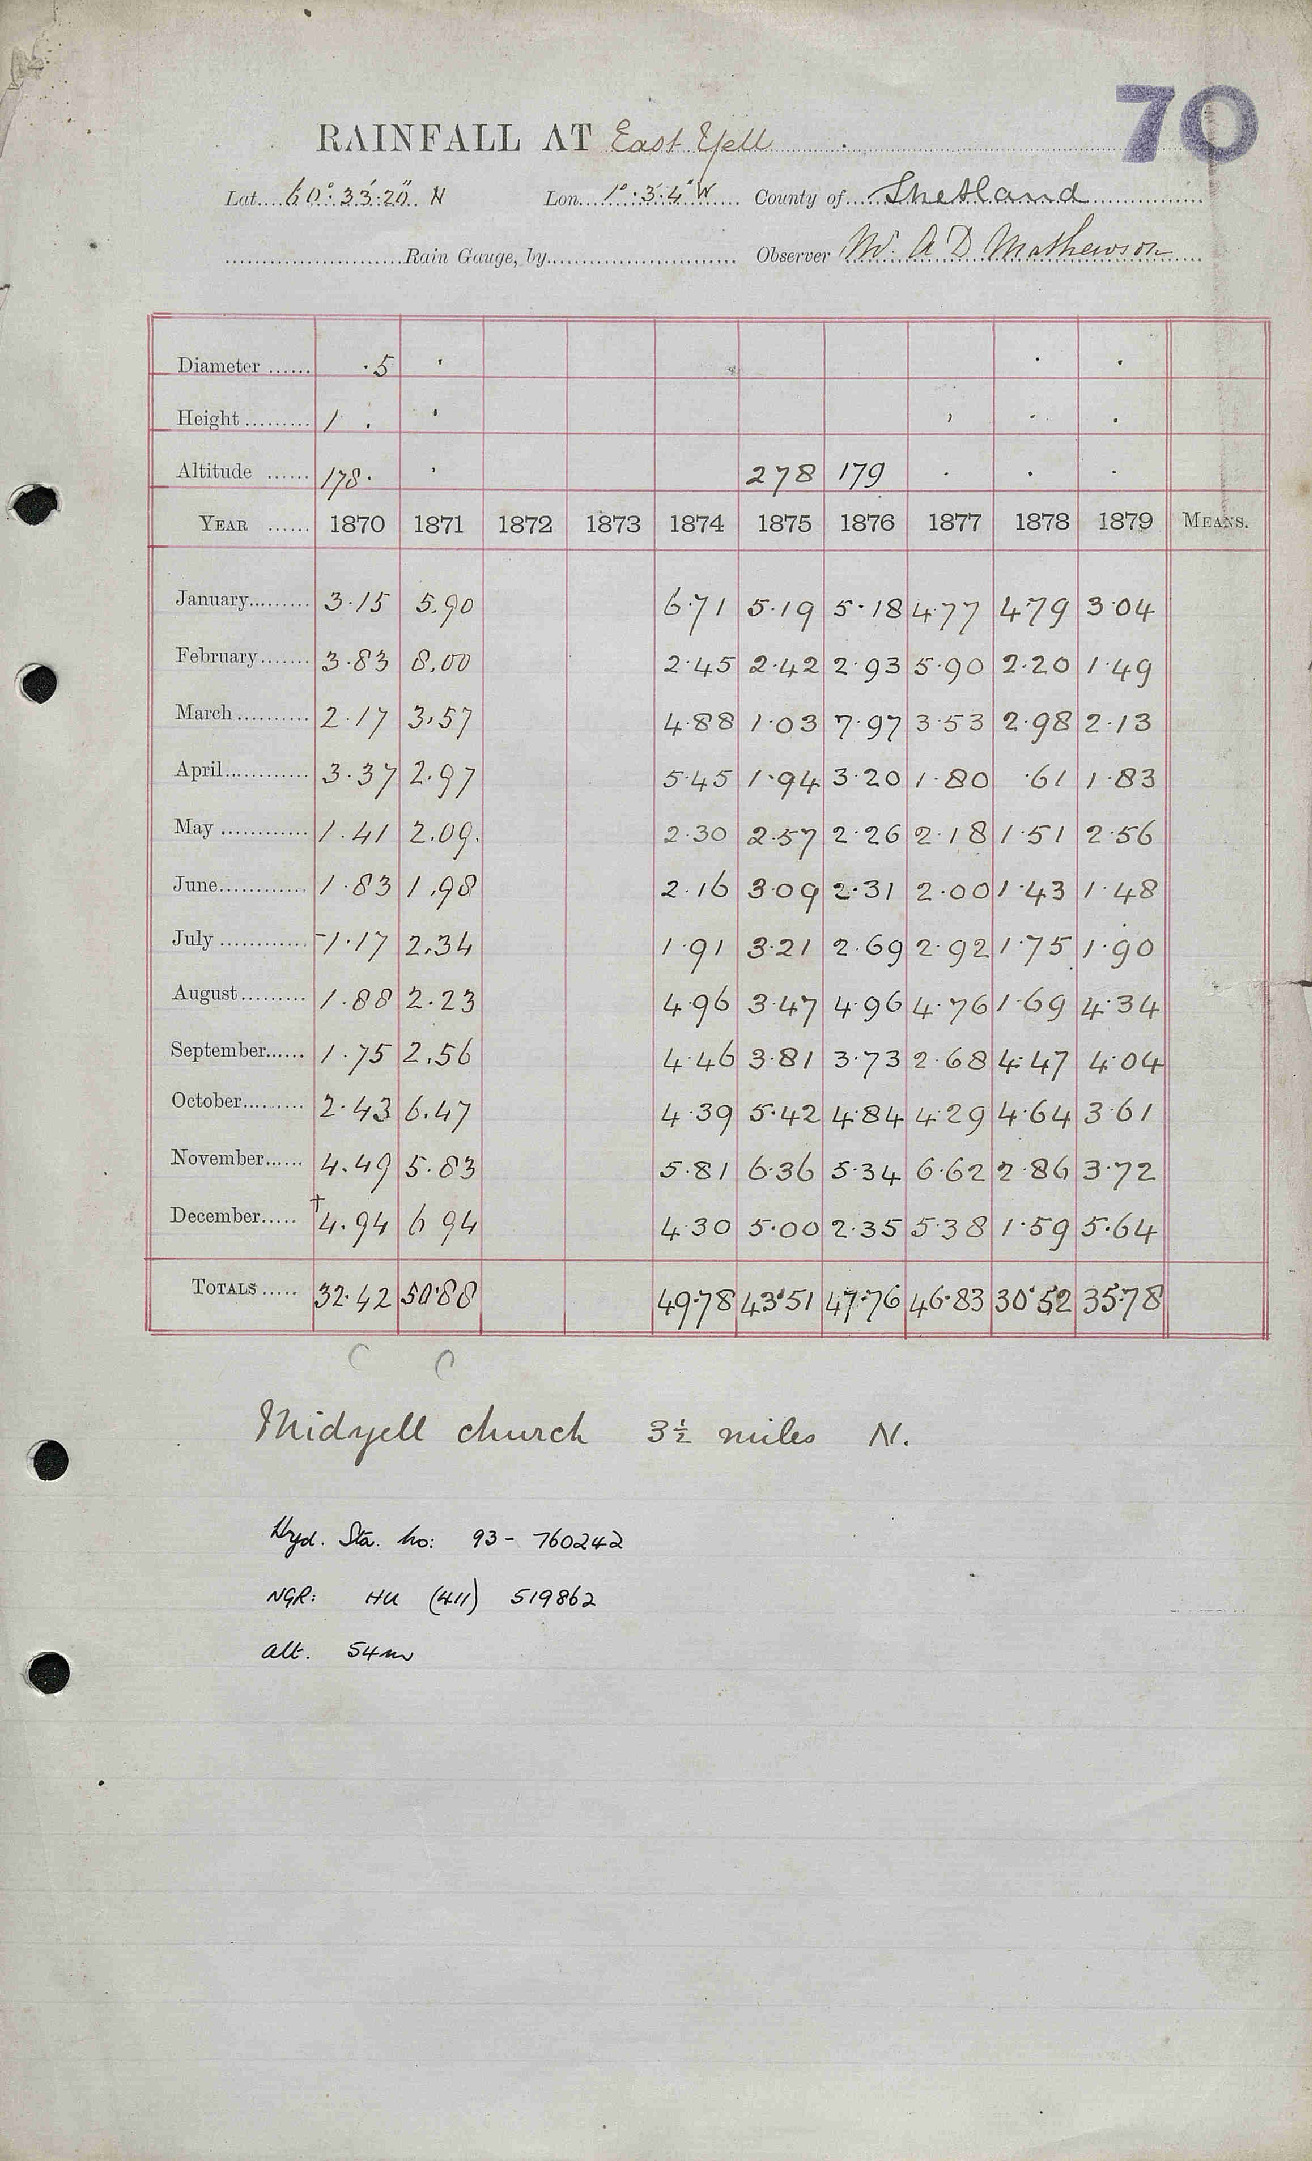 70
RAINFALL AT East Yell
Lat. 60°.33'.20" N Lon. 1°.3'.4" W County of Shetland
Rain Gauge, by Observer Mr. A D Mathewson
Diameter ...... .5
Height ......... 1 .
Altitude ...... 178. 278 179
YEAR ...... 1870 1871 1872 1873 1874 1875 1876 1877 1878 1879 MEANS.
January......... 3.15 5.90 6.71 5.19 5.18 4.77 4.79 3.04
February....... 3.83 8.00 2.45 2.42 2.93 5.90 2.20 1.49
March .......... 2.17 3.57 4.88 1.03 7.97 3.53 2.98 2.13
April............ 3.37 2.97 5.45 1.94 3.20 1.80 .61 1.83
May ............ 1.41 2.09. 2.30 2.57 2.26 2.18 1.51 2.56
June............ 1.83 1.98 2.16 3.09 2.31 2.00 1.43 1.48
July ............ 1.17 2.34 1.91 3.21 2.69 2.92 1.75 1.90
August......... 1.88 2.23 4.96 3.47 4.96 4.76 1.69 4.34
September...... 1.75 2.56 4.46 3.81 3.73 2.68 4.47 4.04
October......... 2.43 6.47 4.39 5.42 4.84 4.29 4.64 3.61
November...... 4.49 5.83 5.81 6.36 5.34 6.62 2.86 3.72
December..... †4.94 6.94 4.30 5.00 2.35 5.38 1.59 5.64
TOTALS ..... 32.42 50.88 49.78 43.51 47.76 46.83 30.52 35.78
Midyell church 3½ miles N.
Hyd. Sta. no: 93- 760242
NGR: HU (411) 519862
alt. 54m